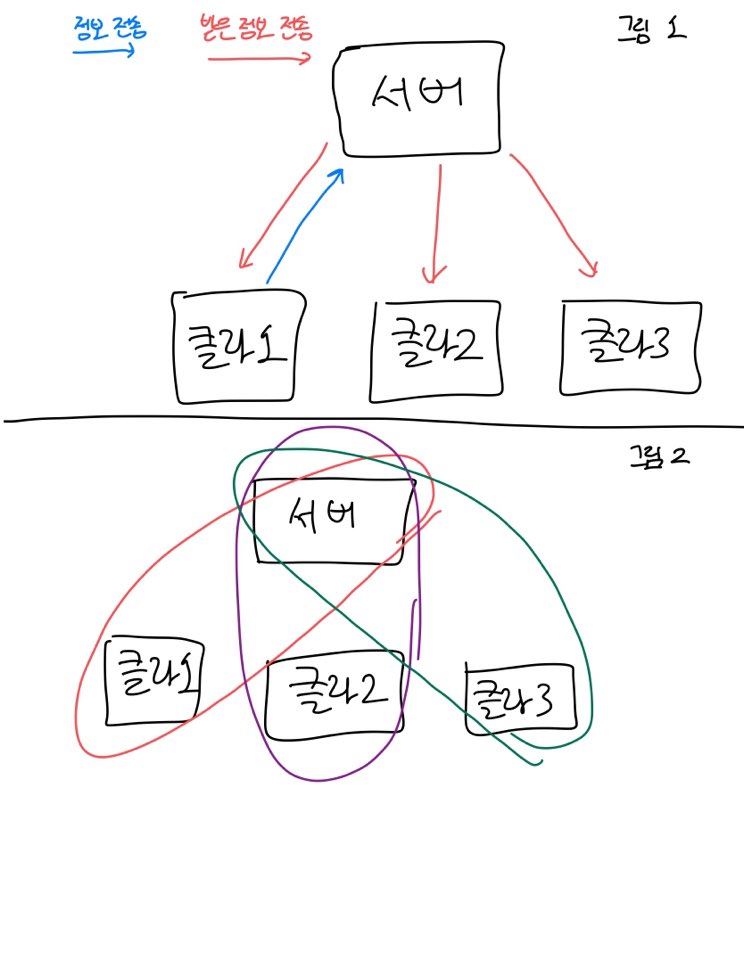 정보 전송 받은 정보 전송 그림 1
서버
클라1 클라2 클라3
그림 2
서버
클라1 클라2 클라3